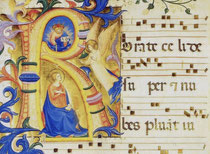 Rorate celi de
su per & nu
bes pluāt iu